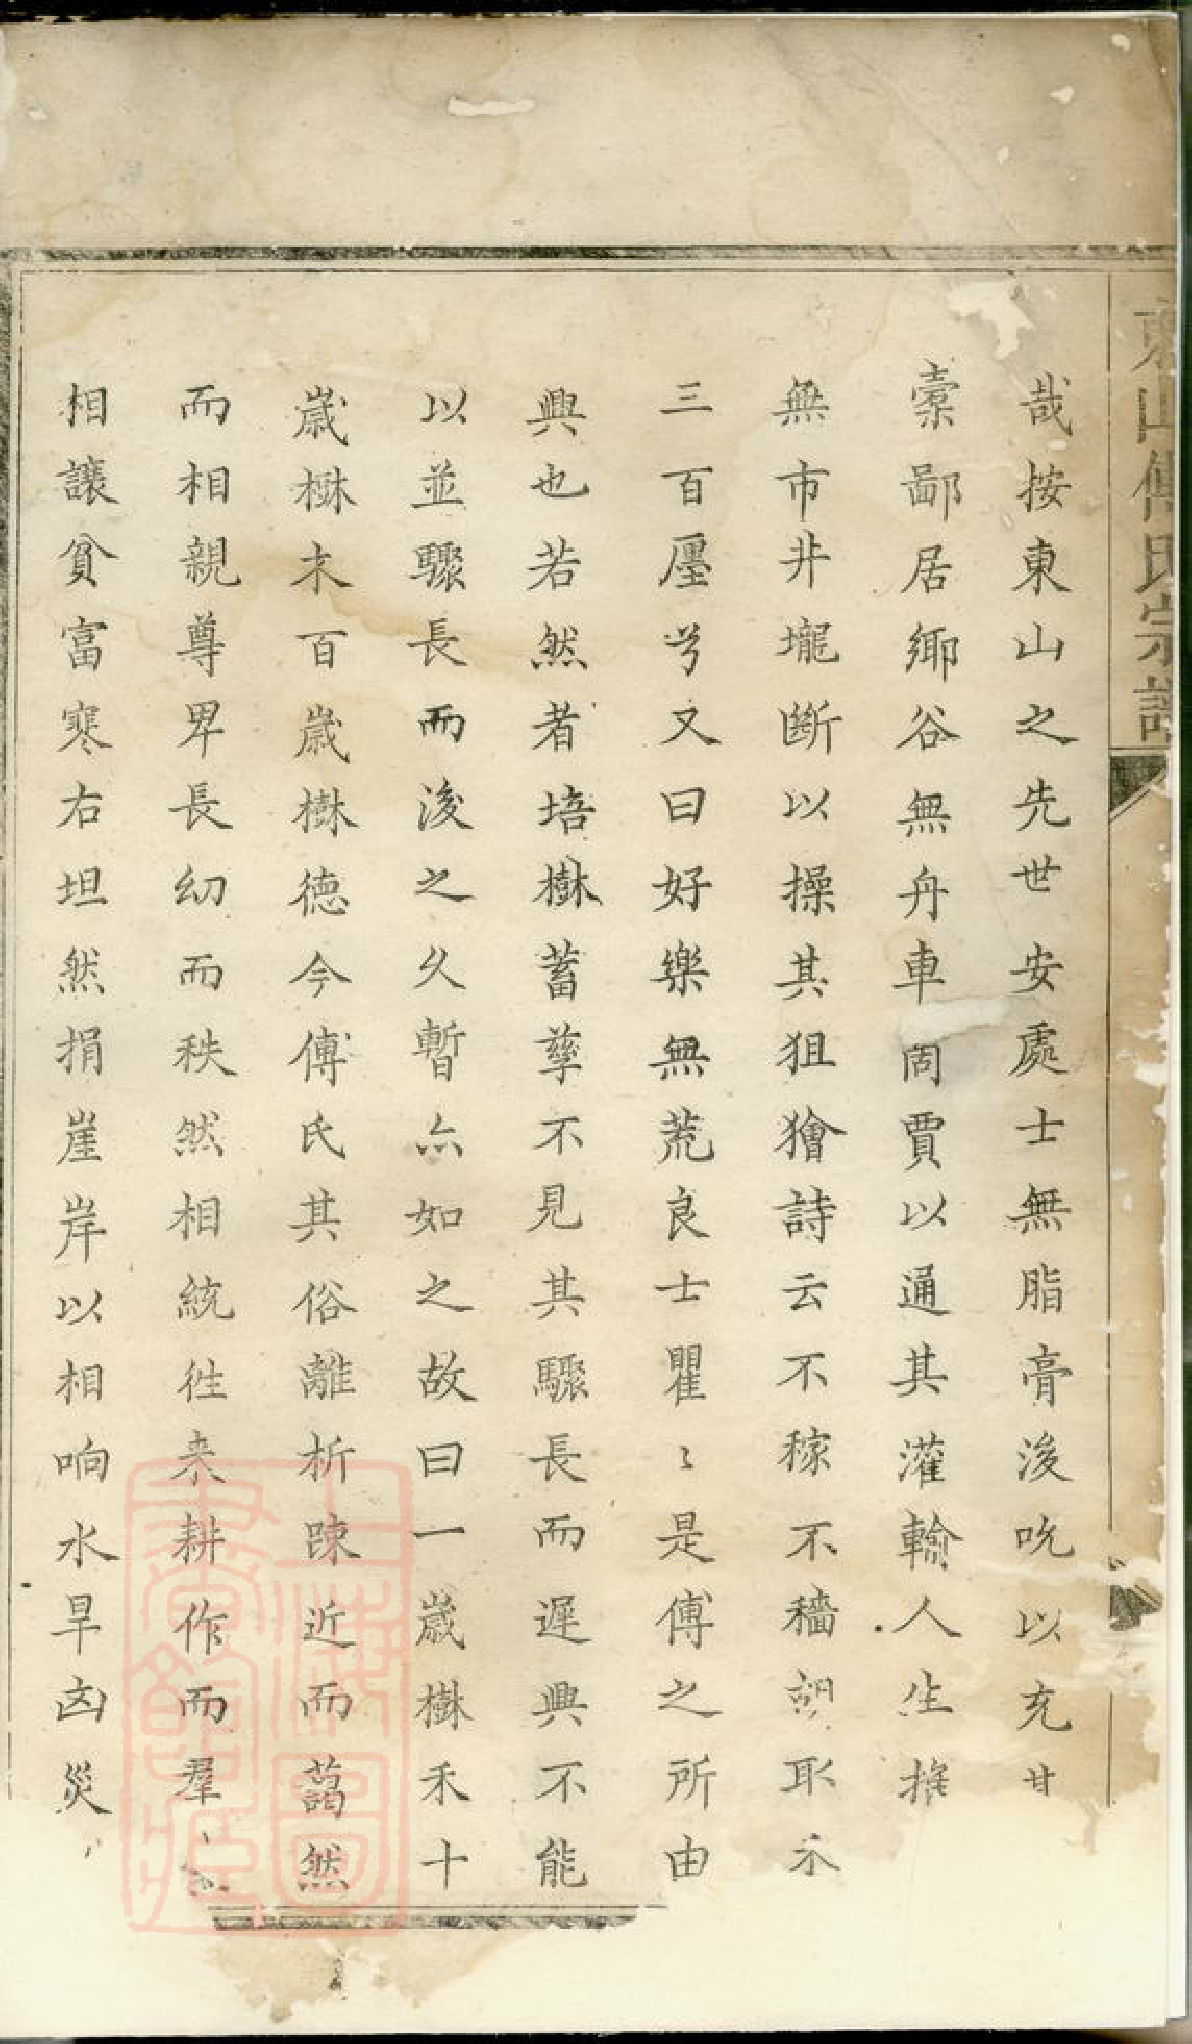 東山傅氏宗譜
哉按東山之先世安處士無脂膏浚吮以充甘
橐鄙居鄉谷無舟車周賈以通其灌輸人生
無市井壠斷以操其狙獪詩云不稼不穡胡取禾
三百廛兮又曰好樂無荒良士瞿〻是傅之所由
興也若然者培樹蓄孳不見其驟長而遲興不能
以並驟長而浚之久暫亦如之故曰一歲樹禾十
歲樹木百歲樹德今傅氏其俗離析踈近而藹然
而相親尊卑長幼而秩然相統徃来耕作而羣
相讓貧富寒右坦然捐崖岸以相响水旱凶災
上海圖書館藏